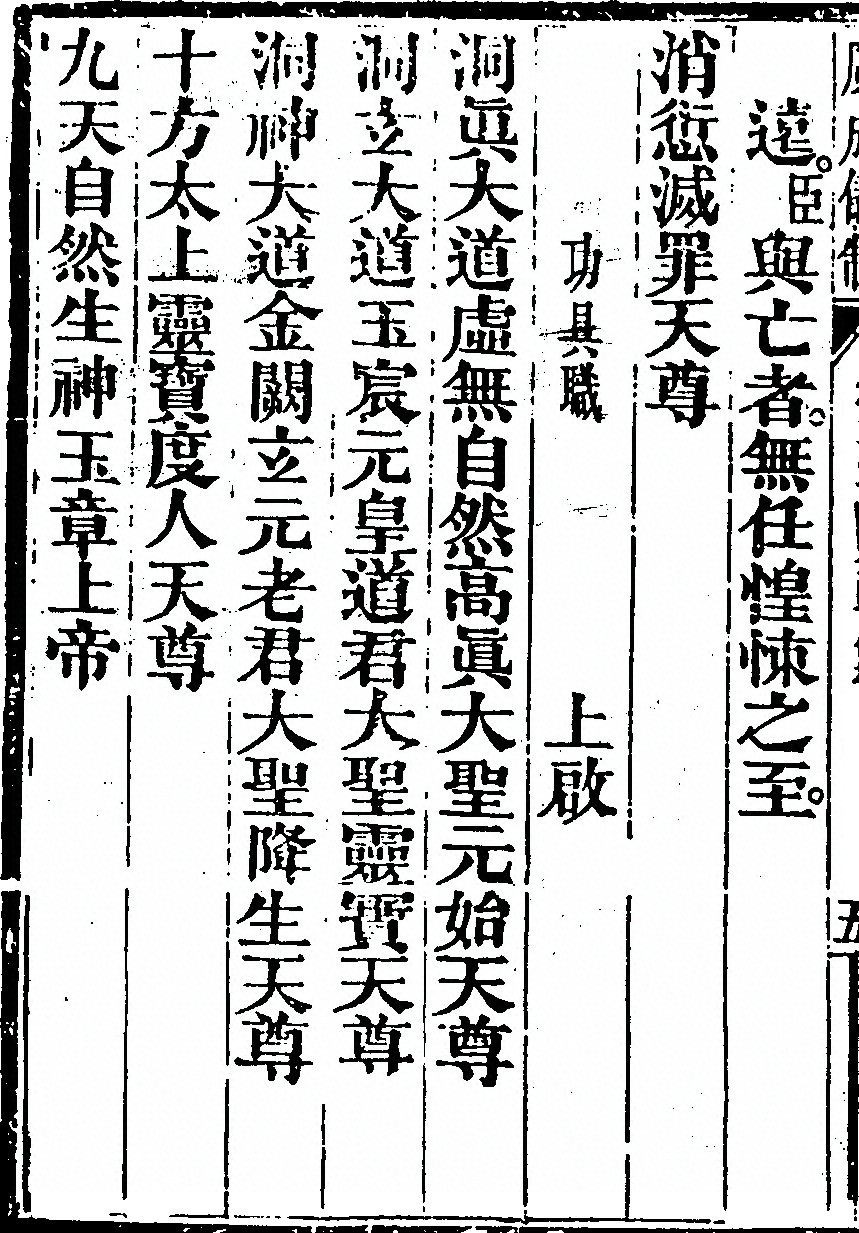 達。臣與亡者。無任惶悚之至。
消愆滅罪天尊
功具職 上啟
洞眞大道虛無自然高眞大聖元始天尊
洞玄大道玉宸元皇道君大聖靈寶天尊
洞神大道金闕玄元老君大聖降生天尊
十方太上靈寶度人天尊
九天自然生神玉章上帝